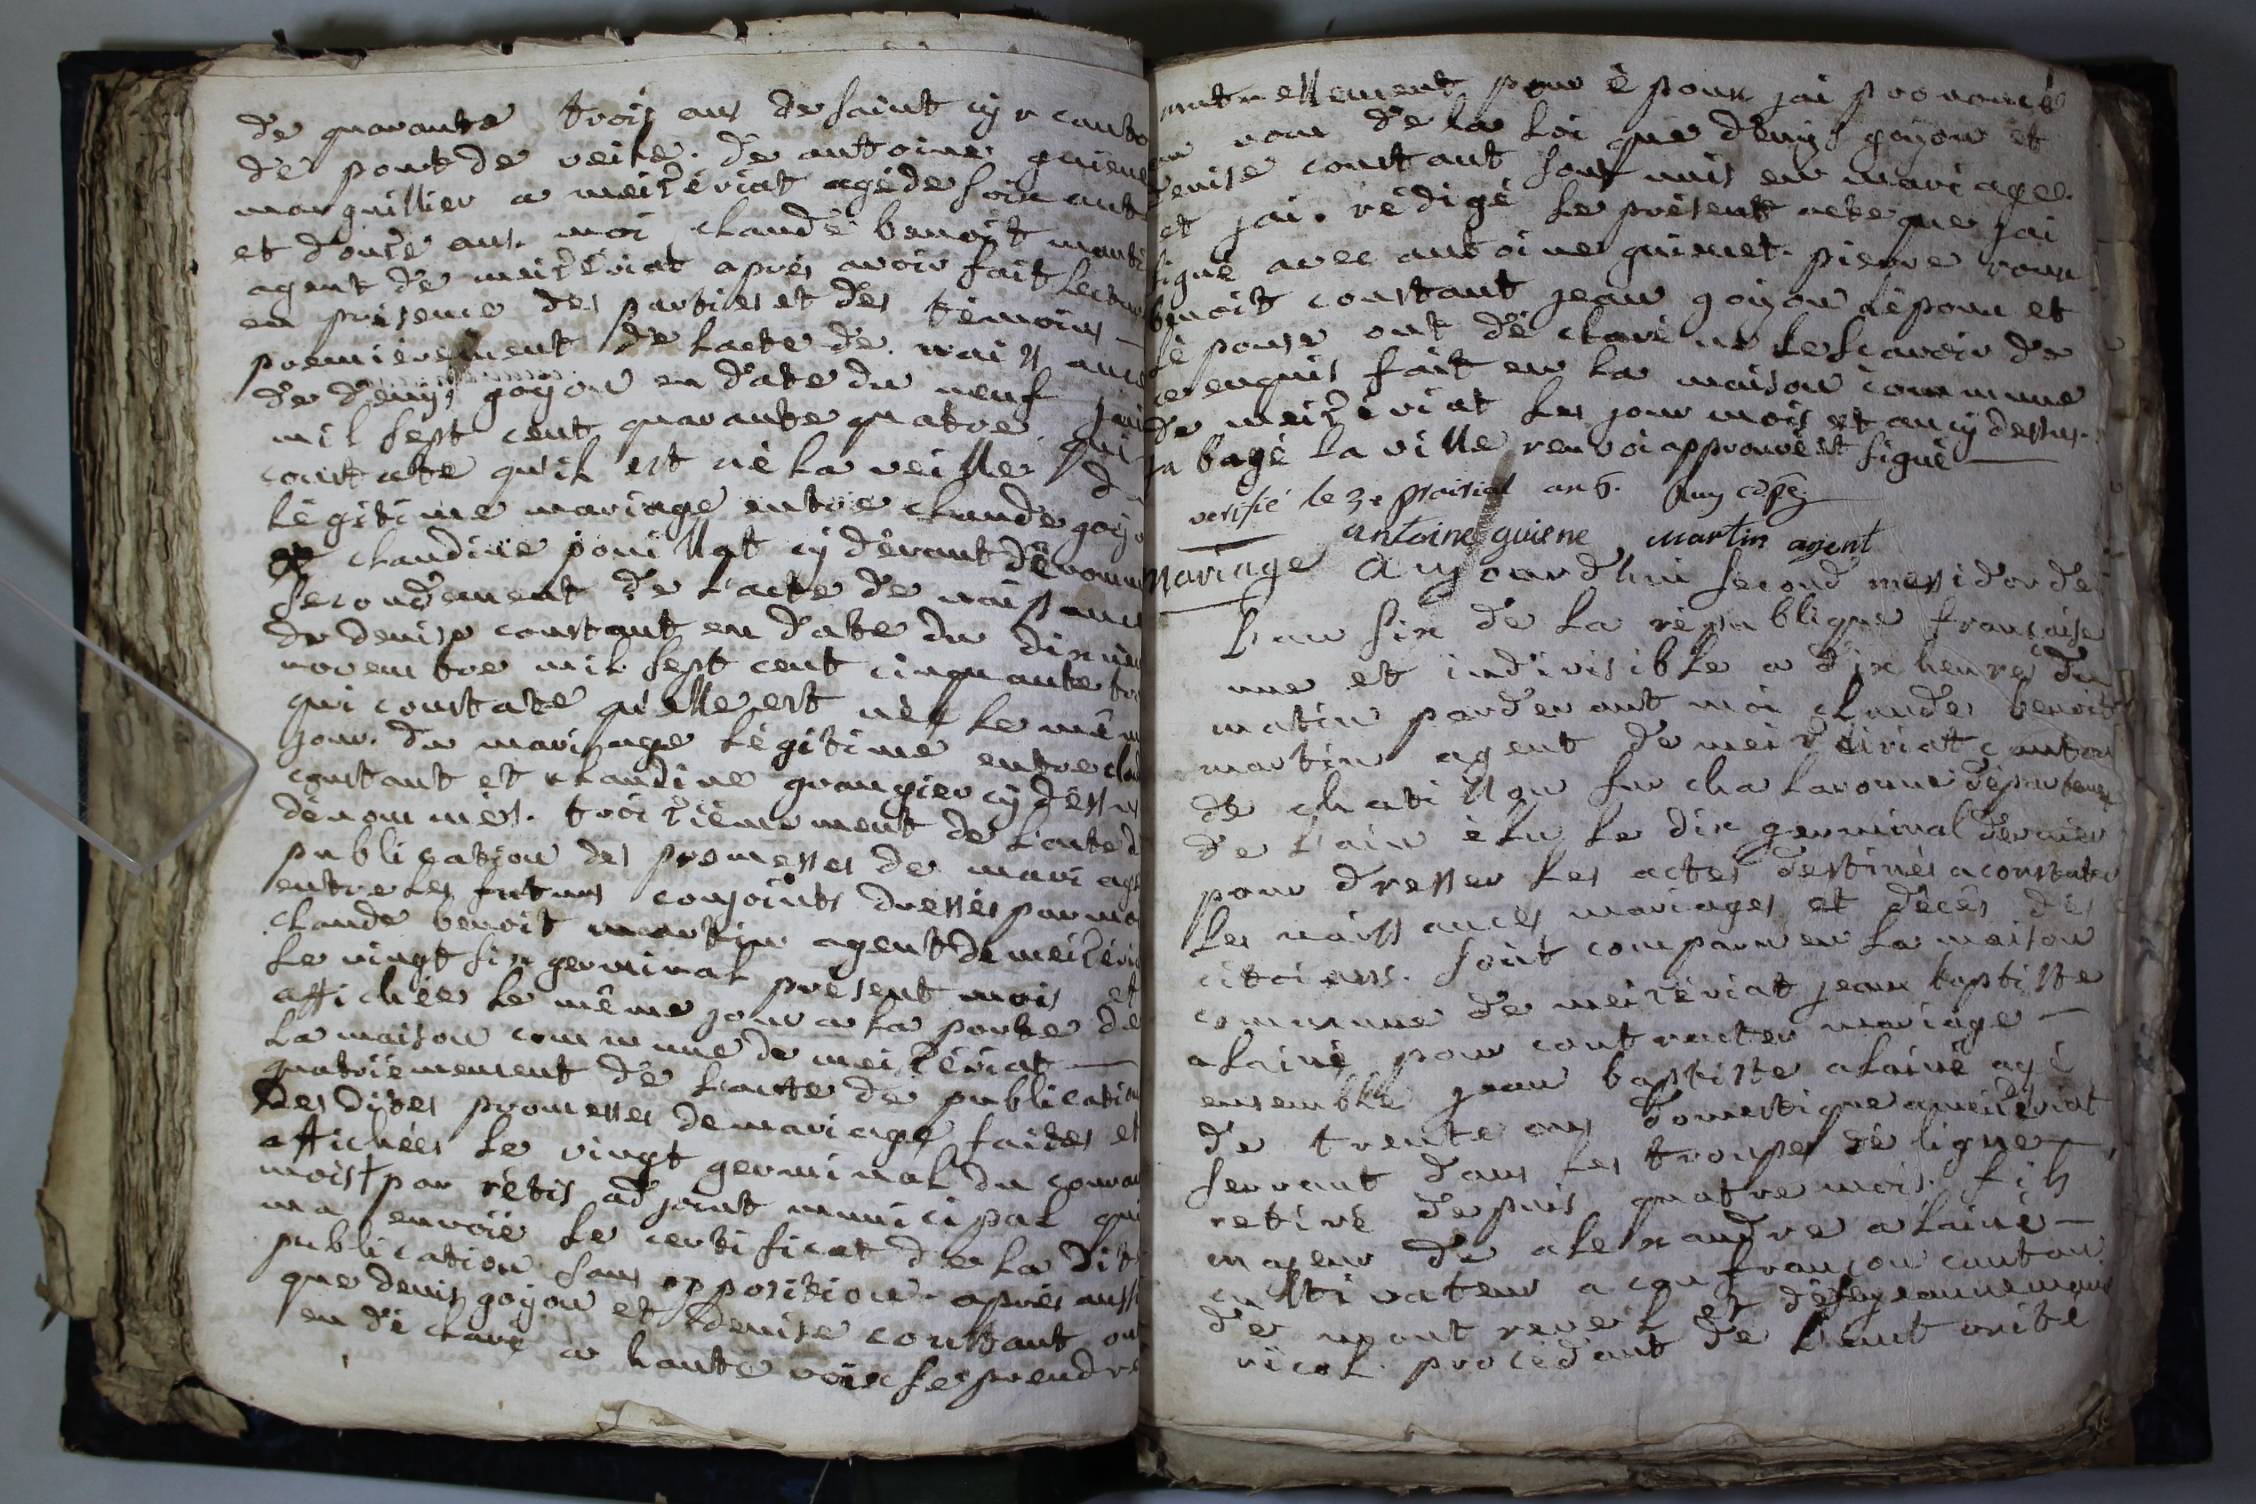 de quarante trois ans de saint cyr canto
de pont de veile. de antoine guiene
marguillier a meizériat agé de soixante
et d'ouze ans. moi claude benoit marti
agent de meizériat aprés avoir fait lectur
en présence des parties et des témoins
premiérement de l'acte de naissance
de denis goyon en date du neuf
mil sept cent quarante quatre qui
constate qu'il est né la veille d
légitime mariage entre claude goyo
et claudine pouillat cy dévant dénomm
secondement de l'acte de naissance
de denise constant en date du dix
novembre mil sept cent cinquante tro
qui constate qu'elle est née le mêm
jour. du mariage légitime entre cla
constant et claudine grangier cy déssus
dénommés. troiziémement de l'acte d
publication des promesses de mariage
entre les futurs conjoints dressés par moi
claude benoit martin agent de meizéria
le vingt six germinal présent mois et
affichée le même jour a la porte de
la maison commune de meizériat —
quatriémement de l'acte de publication
des dites promesses de mariage faites et
affichées le vingt germinal du couran
mois + par rétis adjoint municipal qui
ma envoié le certificat de la dit
publication sans opposition. aprés aussi
que denis goyon et denise constant on
en déclaré a haute voix se prendre
mutuellement pour époux jai prononcé
au nom de la loi que denis goyon et
denise constant sont unis en mariage.
et jai. rédigé le présent acte que jai
signé avec antoine guienet. pierre
benoit constant jean goyon l'époux et
l'épouse ont déclaré ne le scavoir de
ce enquis fait en la maison commune
de meizériat les jour mois et an cy dessus.
a bagé la ville renvoi approuvé et signé —
verifié le 3e prairial an 6.
antoine guiene martin agent
Mariage Aujourd'hui second messidor de
l'an six de la république française
une et indivisible a dix heures du
matin pardevant moi claude benoit
martin agent de meizériat canton
de chatillon sur chalaronne départemen
de l'ain élu le dix germinal dernier
pour dresser les actes destinés a constater
les naissances mariages et décés des
citoiens. sont comparu en la maison
commune de meizériat jean baptiste
alainé pour contracter mariage —
ensemble jean baptiste alainé agé
de trente ans domestique a meizériat
servant dans les troupes de ligne —
retiré depuis quatre mois. fils
majeur de alexandre alainé —
cultivateur a confrançon canton
de mont revel et de jeanne marie
nicol. procédant de l'autorité